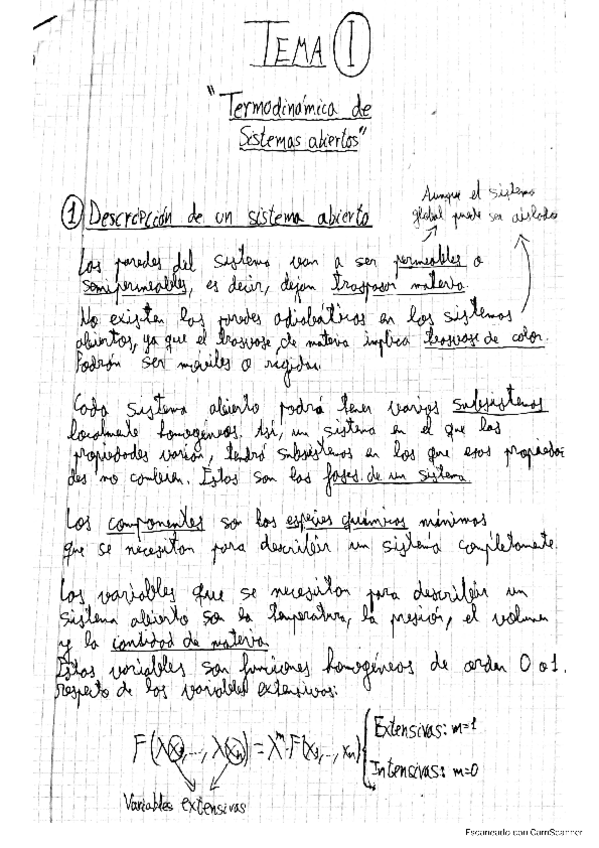 TEMA 1
"Termodinámica de
Sistemas abiertos"
Aunque el sistema
global puede ser aislado
1 Descripción de un sistema abierto
Las paredes del sistema van a ser permeables o
semipermeables, es decir, dejan traspasar materia.
No existen las paredes adiabáticas en los sistemas
abiertos, ya que el trasvase de materia implica trasvase de calor.
Podrán ser móviles o rígidas.
Cada sistema abierto podrá tener varios subsistemas
localmente homogéneos. Así, un sistema en el que las
propiedades varían, tendrá subsistemas en los que esas propieda
des no cambien. Estos son las fases de un sistema.
Los componentes son las especies químicas mínimas
que se necesitan para describir un sistema completamente.
Las variables que se necesitan para describir un
sistema abierto son la temperatura, la presión, el volumen
y la cantidad de materia.
Estas variables son funciones homogéneas de orden 0 o 1,
respecto de las variables extensivas:
F(λx₁,..., λxₙ) = λᵐ·F(x₁,..., xₙ)
Extensivas: m=1
Intensivas: m=0
Variables extensivas
Escaneado con CamScanner